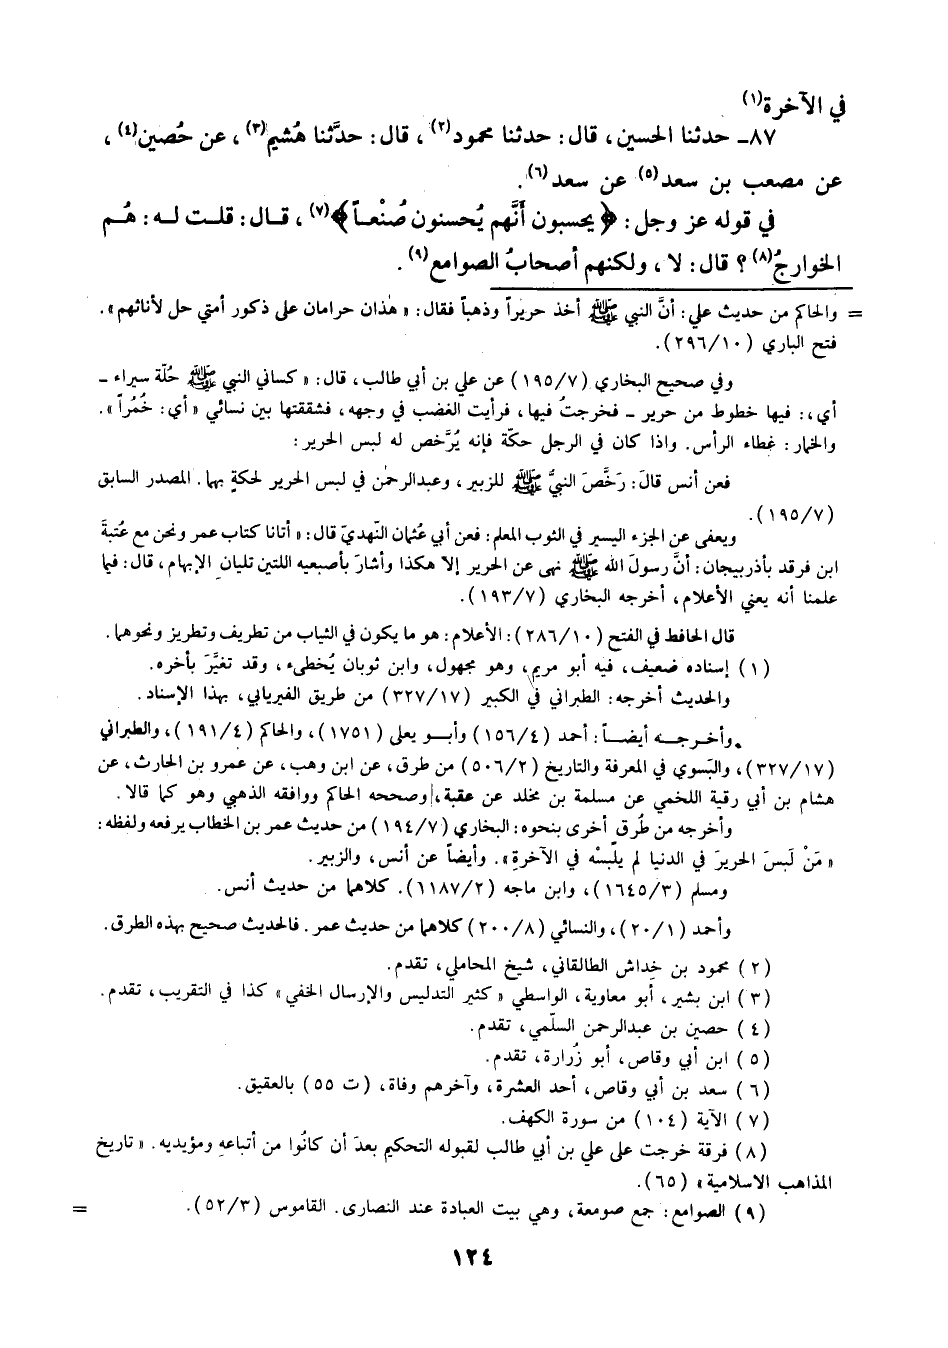 في الآخرة(١)
٨٧ـ حدثنا الحسين، قال: حدثنا محمود(٢)، قال: حدَّثنا هُشيم(٣)، عن حُصين(٤)،
عن مصعب بن سعد(٥) عن سعد(٦).
في قوله عز وجل: ﴿يحسبون أنَّهم يُحسنون صُنْعاً﴾(٧)، قال: قلت له: هُم
الخوارجُ(٨)؟ قال: لا، ولكنهم أصحابُ الصوامع(٩).
= والحاكم من حديث علي: أنَّ النبي ﷺ أخذ حريراً وذهباً فقال: «هٰذان حرامان على ذكور أمتي حل لأناثهم».
فتح الباري (٢٩٦/١٠).
وفي صحيح البخاري (١٩٥/٧) عن علي بن أبي طالب، قال: «كساني النبي ﷺ حُلّة سيراء -
أي،: فيها خطوط من حرير - فخرجتُ فيها، فرأيت الغضب في وجهه، فشققتها بين نسائي «أي: خُمُراً».
والخمار: غطاء الرأس. واذا كان في الرجل حكّة فإنه يُرَّخص له لبس الحرير:
فعن أنس قالَ: رَخَّصَ النبيَّ ﷺ للزبير، وعبدالرحمٰن في لبس الحرير لحكةٍ بهما. المصدر السابق
(١٩٥/٧).
ويعفى عن الجزء اليسير في الثوب المعلم: فعن أبي عُثمان النّهديّ قال: «أتانا كتاب عمر ونحن مع عُتبةَ
ابن فرقد بأذربيجان: أنَّ رسولَ الله ﷺ نهى عن الحرير إلا هكذا وأشارَ بأصبعيه اللتين تليانِ الإبهام، قال: فيما
علمنا أنه يعني الأعلام، أخرجه البخاري (١٩٣/٧).
قال الحافظ في الفتح (٢٨٦/١٠): الأعلام: هو ما يكون في الثياب من تطريف وتطريز ونحوهما.
(١) إسناده ضعيف، فيه أبو مريم، وهو مجهول، وابن ثوبان يُخطىء، وقد تغيَّرَ بأخره.
والحديث أخرجه: الطبراني في الكبير (٣٢٧/١٧) من طريق الفريابي، بهذا الإسناد.
وأخرجه أيضاً: أحمد (١٥٦/٤) وأبو يعلى (١٧٥١)، والحاكم (١٩١/٤)، والطبراني
(٣٢٧/١٧)، والبَسوي في المعرفة والتاريخ (٥٠٦/٢) من طرق، عن ابن وهب، عن عمرو بن الحارث، عن
هشام بن أبي رقية اللخمي عن مسلمة بن مخلد عن عقبة، وصححه الحاكم ووافقه الذهبي وهو كما قالا.
وأخرجه من طُرق أخرى بنحوه: البخاري (١٩٤/٧) من حديث عمر بن الخطاب يرفعه ولفظه:
«مَنْ لَبَسَ الحريرَ في الدنيا لم يلْبسْه في الآخرةِ». وأيضاً عن أنس، والزبير.
ومسلم (١٦٤٥/٣)، وابن ماجه (١١٨٧/٢). كلاهما من حديث أنس.
وأحمد (٢٠/١)، والنسائي (٢٠٠/٨) كلاهما من حديث عمر. فالحديث صحيح بهذه الطرق.
(٢) محمود بن خِداش الطالقاني، شيخ المحاملي، تقدم.
(٣) ابن بشير، أبو معاوية، الواسطي «كثير التدليس والإرسال الخفي» كذا في التقريب، تقدم.
(٤) حصين بن عبدالرحمن السلّمي، تقدم.
(٥) ابن أبي وقاص، أبو زُرارة، تقدم.
(٦) سعد بن أبي وقاص، أحد العشرة، وآخرهم وفاة، (ت ٥٥) بالعقيق.
(٧) الآية (١٠٤) من سورة الكهف.
(٨) فرقة خرجت على علي بن أبي طالب لقبوله التحكيم بعدَ أن كانُوا من أتباعهِ ومؤيديه. «تاريخ
المذاهب الاسلامية» (٦٥).
(٩) الصوامع: جمع صومعة، وهي بيت العبادة عند النصارى. القاموس (٥٢/٣). =
١٢٤